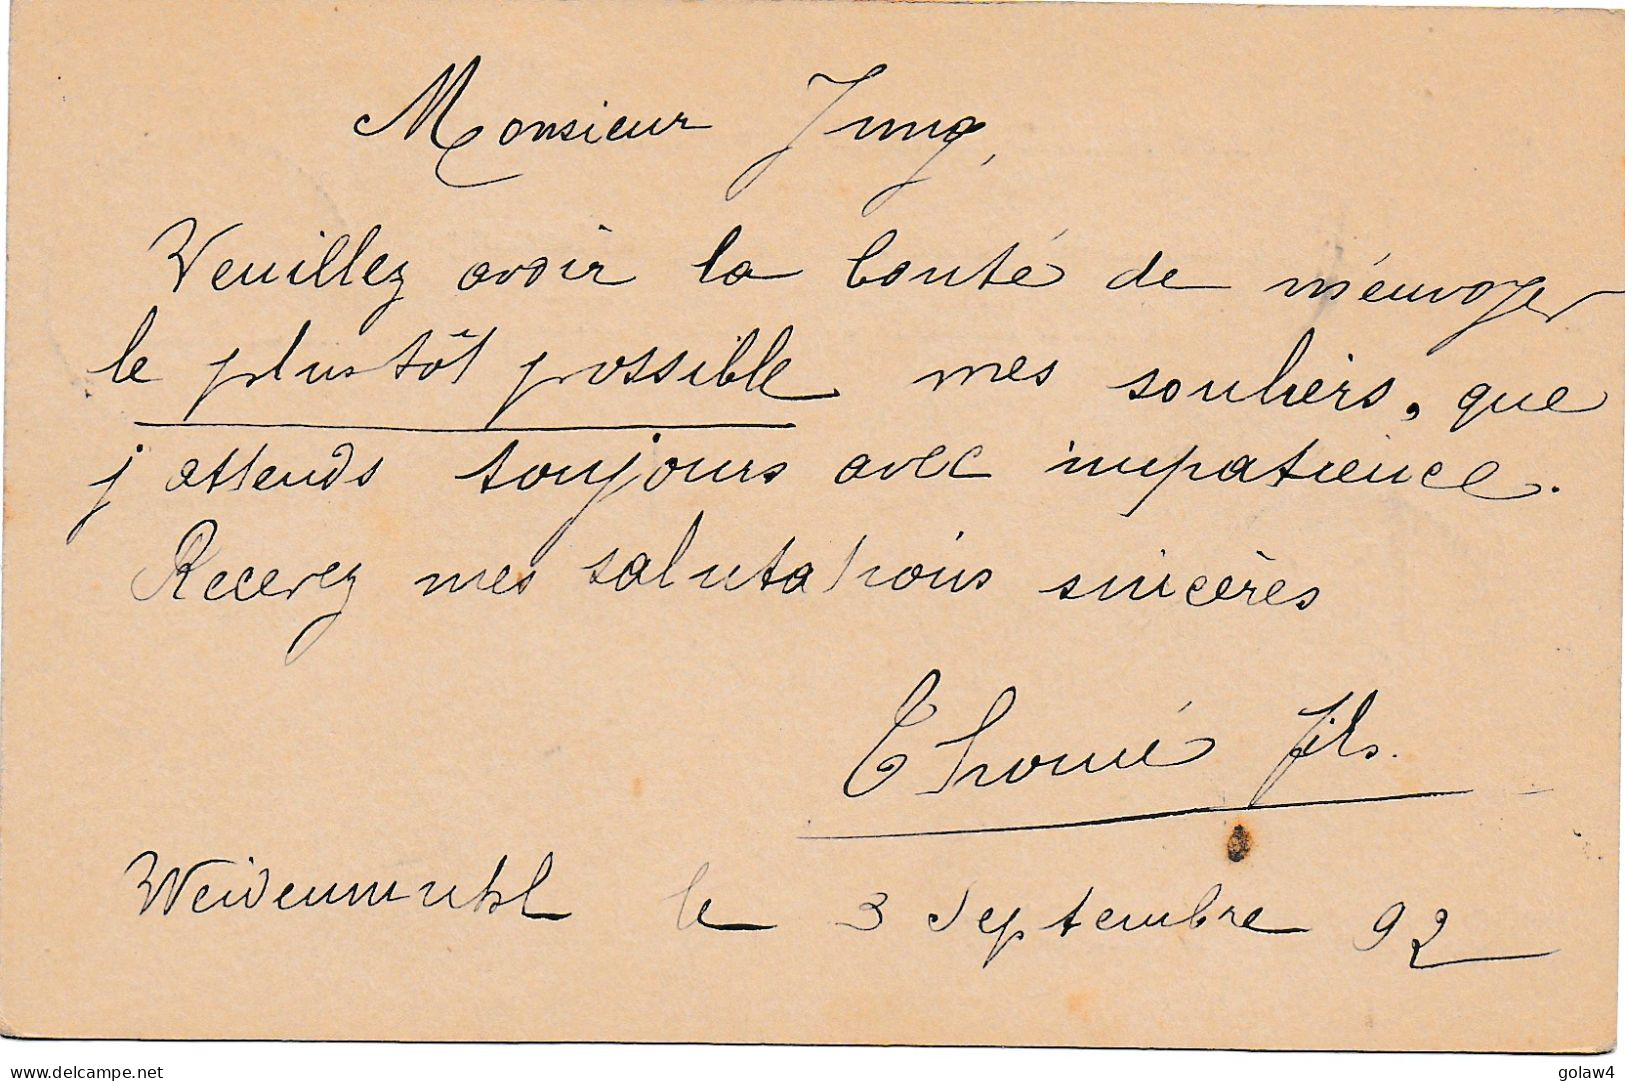 Monsieur Jung,
Veuillez avoir la bonté de m'envoyer
le plustôt possible mes souliers, que
j'attends toujours avec impatience.
Recevez mes salutations sincères
Thomé fils.
Weidenmuhl le 3 Septembre 92
delcampe.net
golaw4